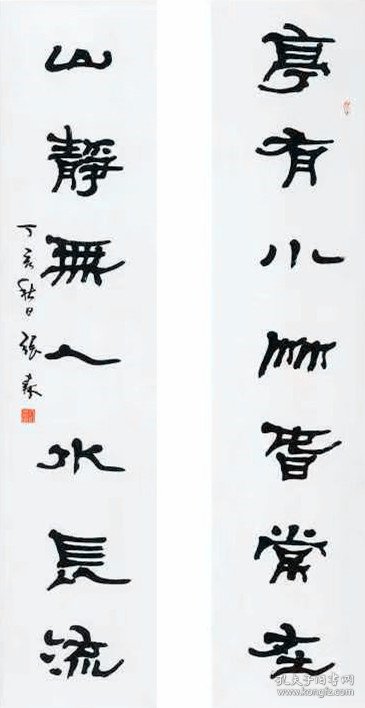 亭有小竹旾常在
山靜無人水長流
丁亥秋日張森
孔夫子旧书网
www.kongfz.com